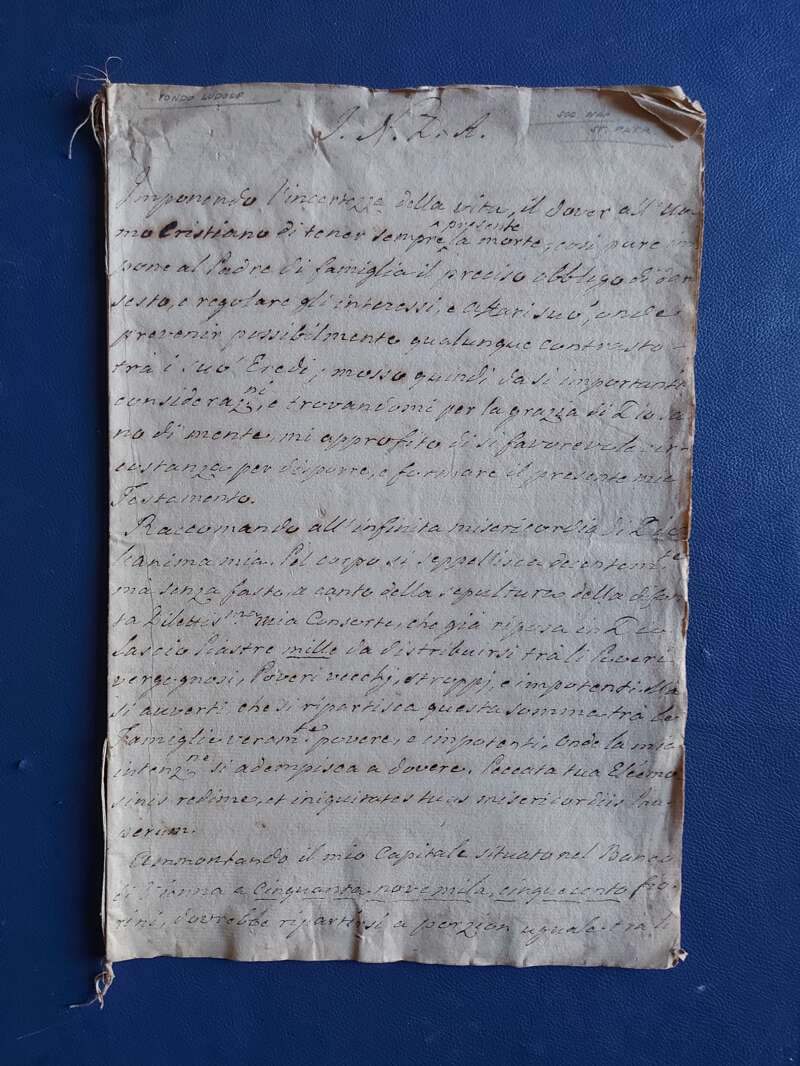 FONDO LUDOLF
SOC NAP
ST. PATR.
J. N. D. A.
Imponendo l'incertezza della vita, il dover all'Uo-
mo Cristiano di tener sempre presente la morte, così pure im
pone al Padre di famiglia il preciso obbligo di dar
sesto, e regolare gli interessi, e affari suo', onde
prevenir possibilmente qualunque contrasto
trà i suo' Eredi; mosso quindi da sì importanti
considerazni, e trovandomi per la grazia di Dio sa
no di mente, mi approfito di sì favorevole cir-
costanza per disporre, e formare il presente mio
Testamento.
Raccomando all'infinita misericordia di Dio
l'anima mia. Il corpo si seppellisca decentemte
mà senza fasto, a canto della sepultura della defon
ta Dilettisma mia Consorte, che già riposa in Dio
Lascio Piastre mille da distribuirsi trà li Poveri
vergognosi, Poveri vecchj, stroppj, e impotenti. Ma
si averti che si ripartisca questa somma trà le
Famiglie veramte povere, e impotenti, onde la mia
intenzne si adempisca a dovere. Peccata tua Eleemo
sinis redime, et iniquitates tuas misericordiis Pau
perum.
Ammontando il mio Capitale situato nel Banco
di Vienna a Cinquanta nove mila, cinquecento fio-
rini, dovrebbe ripartirsi a porzion uguale trà li